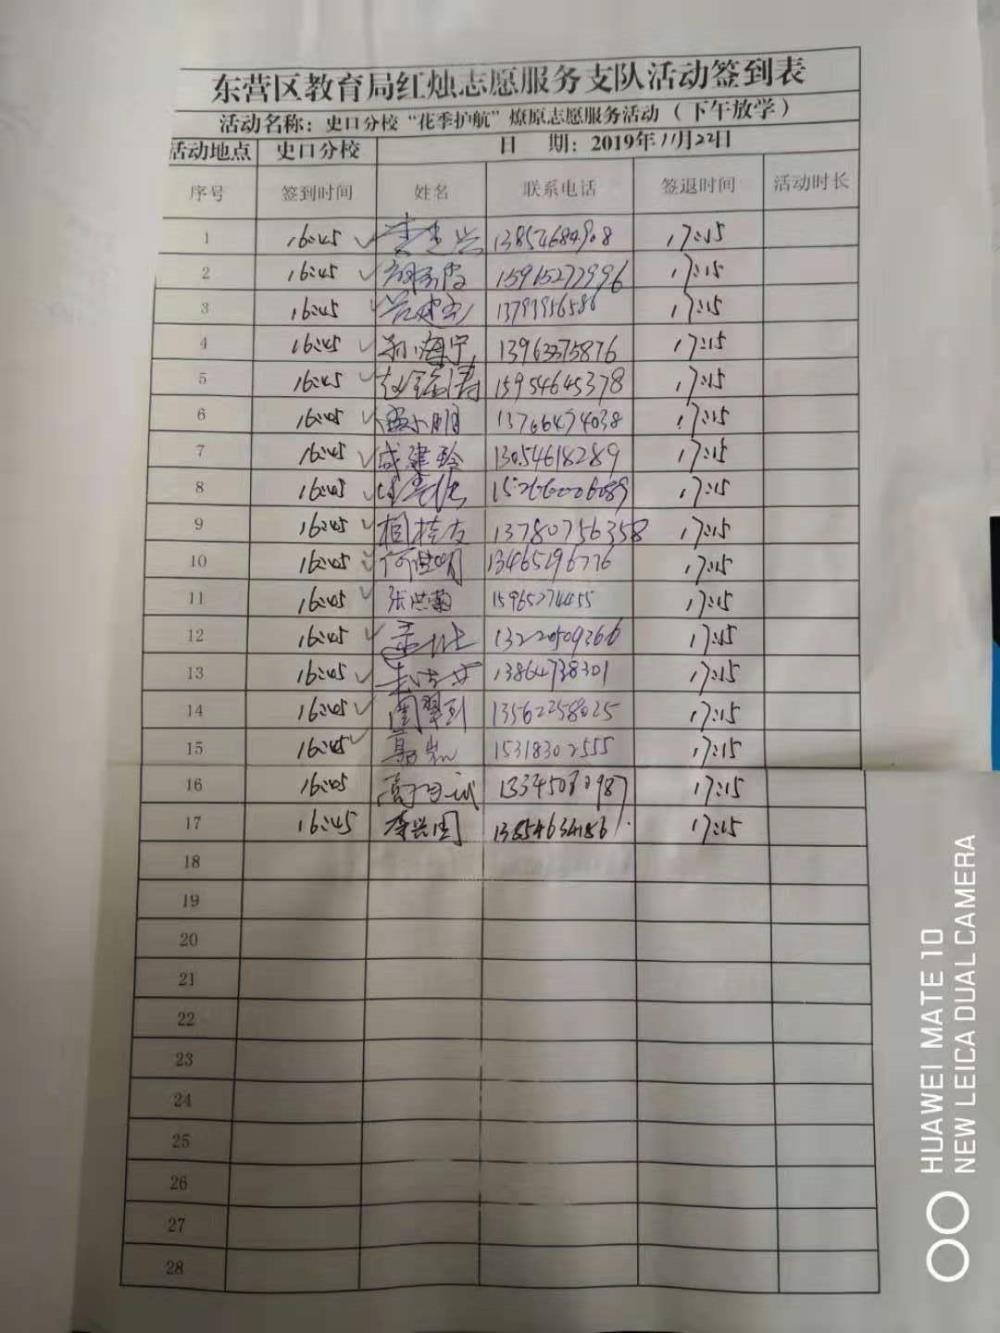 东营区教育局红烛志愿服务支队活动签到表
活动名称：史口分校“花季护航”燎原志愿服务活动（下午放学）
活动地点 史口分校 日 期：2019年11月22日
序号 签到时间 姓名 联系电话 签退时间 活动时长
1 16:45 13854684908 17:15
2 16:45 15915272996 17:15
3 16:45 17:15
4 16:45 孙海宁 13963375876 17:15
5 16:45 15954645378 17:15
6 16:45 13766474038 17:15
7 16:45 成建玲 13054618289 17:15
8 16:45 17:15
9 16:45 相桂友 13780756358 17:15
10 16:45 何世明 13465196776 17:15
11 16:45 张洪菊 15965274455 17:15
12 16:45 13220509266 17:15
13 16:45 13864738301 17:15
14 16:45 13562258025 17:15
15 16:45 15318302555 17:15
16 16:45 17:15
17 16:45 李兴国 17:15
18
19
20
21
22
23
24
25
26
27
28
HUAWEI MATE 10
NEW LEICA DUAL CAMERA